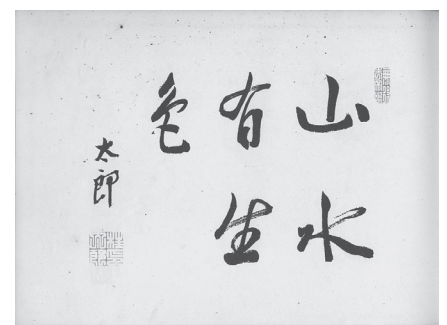 山水
有生
色
太郎